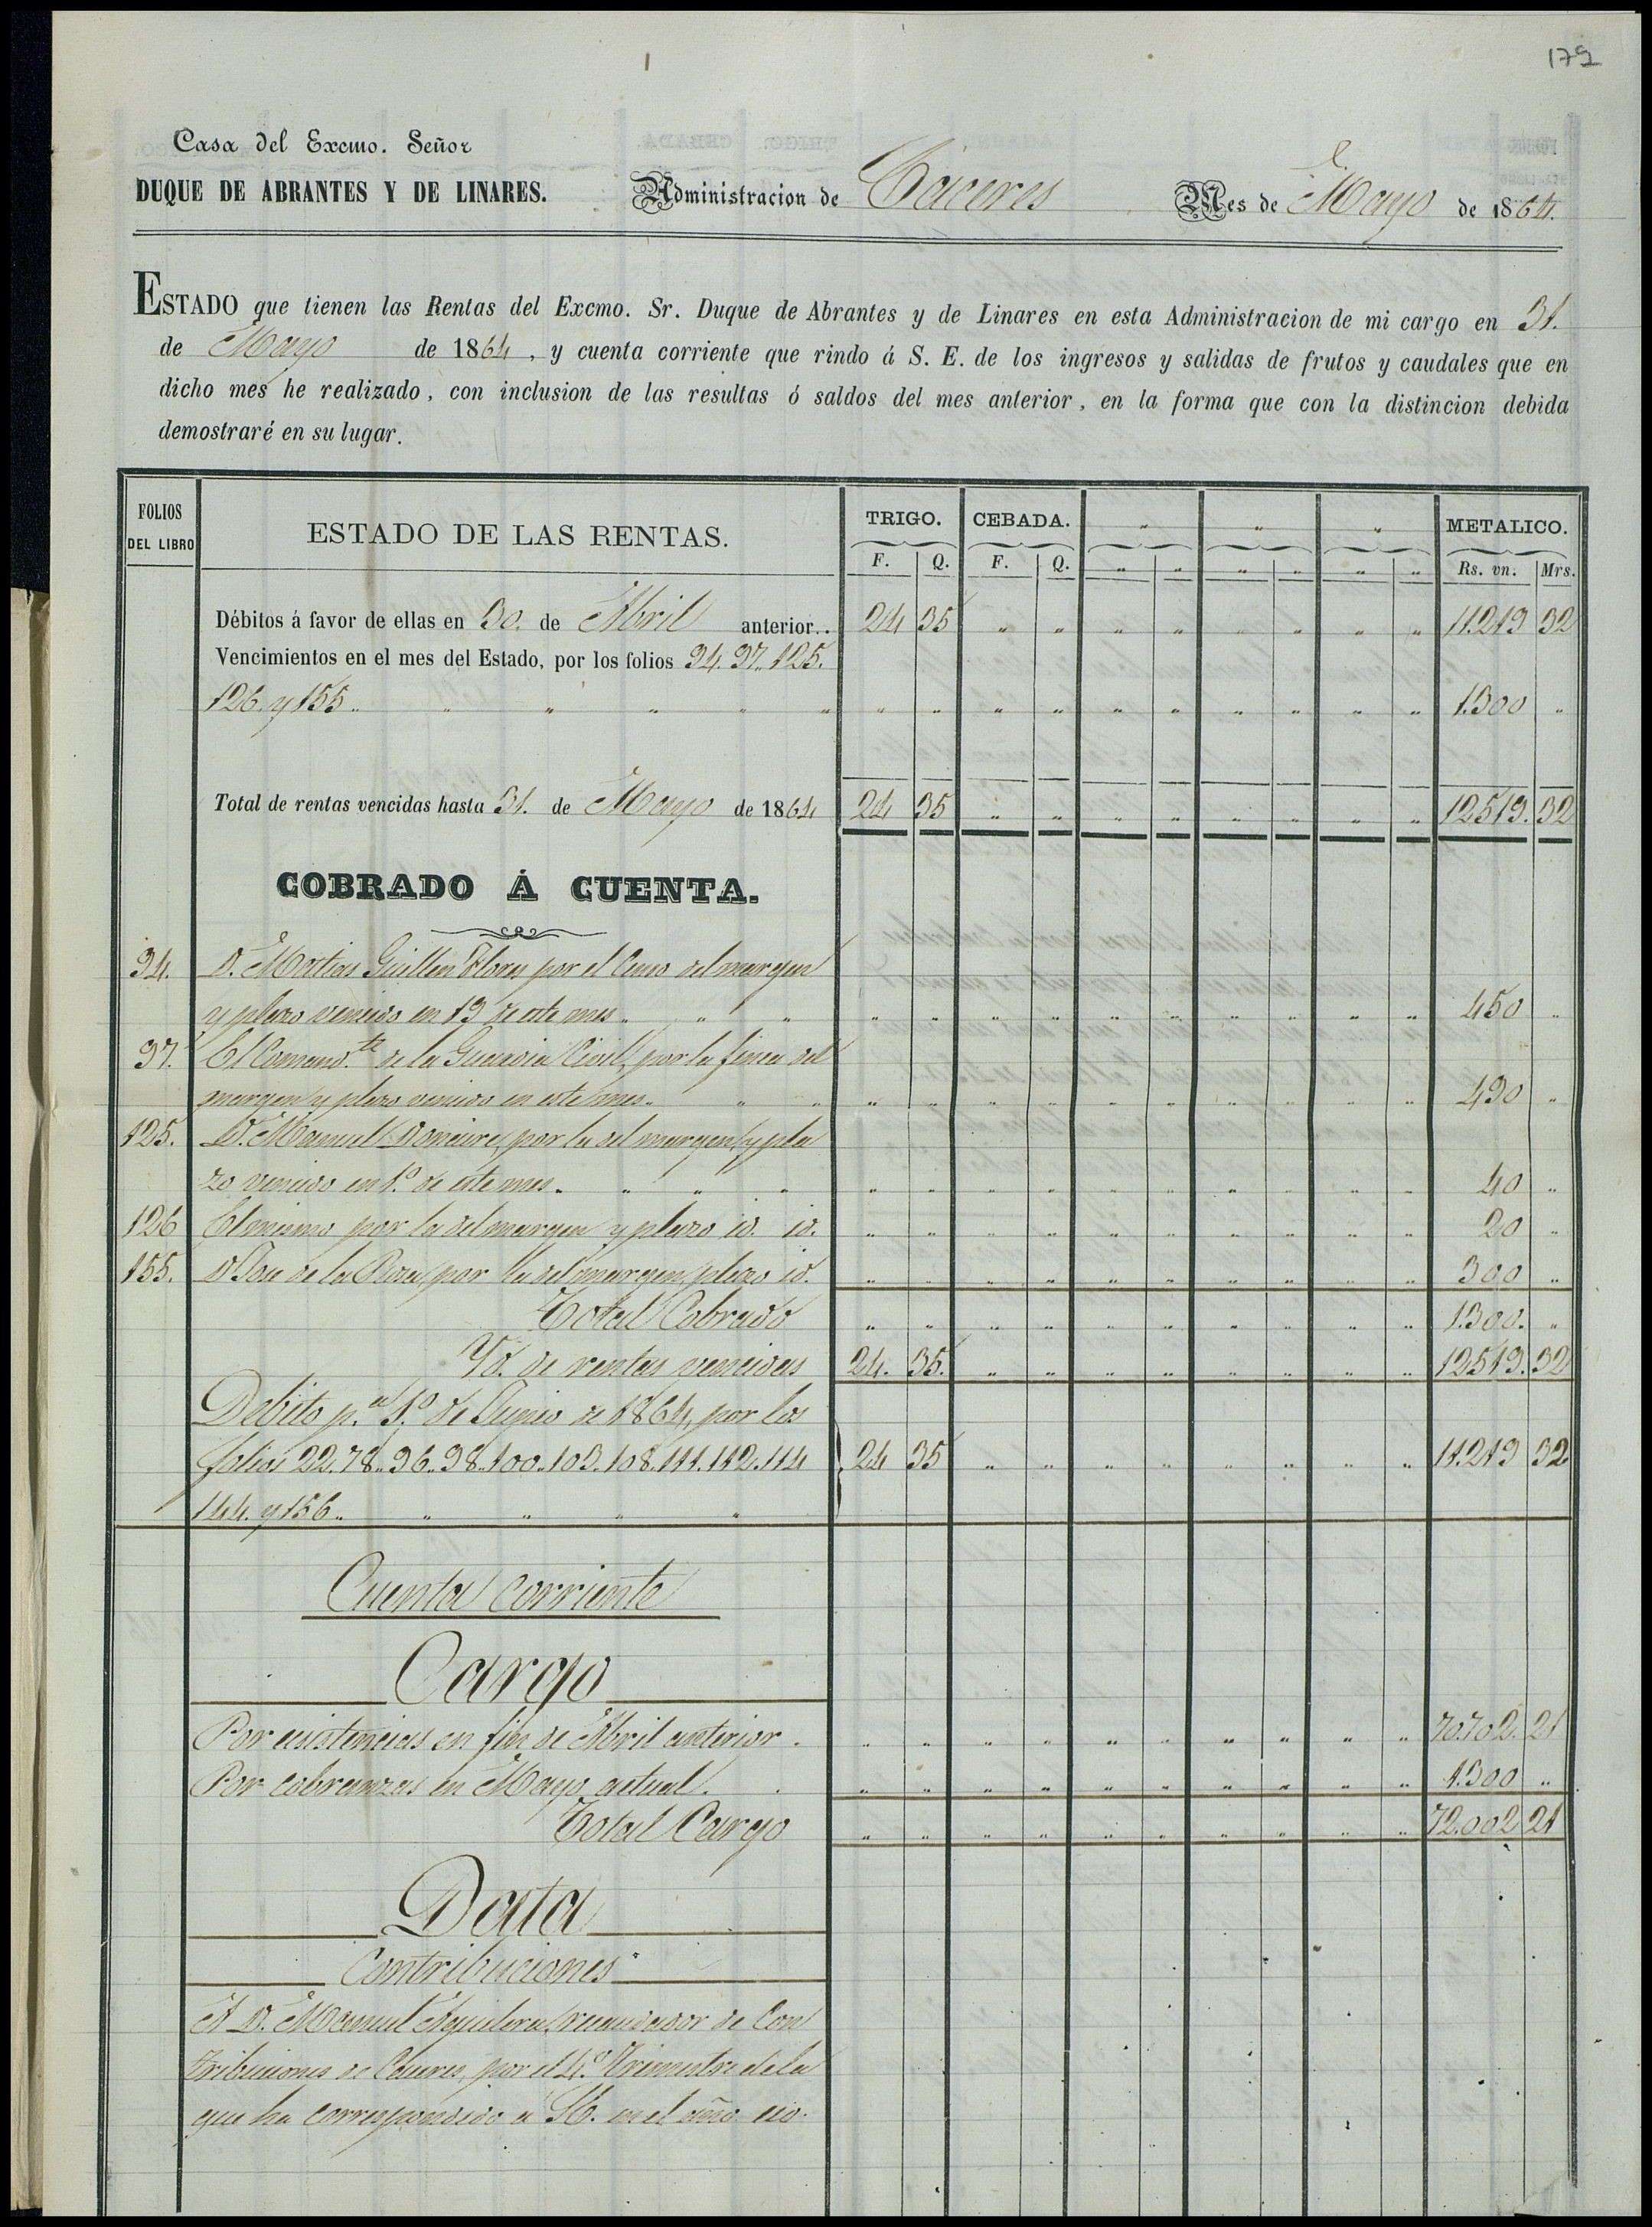 179
Casa del Excmo. Señor
DUQUE DE ABRANTES Y DE LINARES. Administracion de Cáceres Mes de Mayo de 1864.
ESTADO que tienen las Rentas del Excmo. Sr. Duque de Abrantes y de Linares en esta Administracion de mi cargo en 31.
de Mayo de 1864, y cuenta corriente que rindo á S. E. de los ingresos y salidas de frutos y caudales que en
dicho mes he realizado, con inclusion de las resultas ó saldos del mes anterior, en la forma que con la distincion debida
demostraré en su lugar.
FOLIOS DEL LIBRO ESTADO DE LAS RENTAS. TRIGO. CEBADA. " " " METALICO.
F. Q. F. Q. " " " " " " Rs. vn. Mrs.
Débitos á favor de ellas en 30. de Abril anterior.. 24 35 " " " " " " " " 11.219 32
Vencimientos en el mes del Estado, por los folios 94. 97. 125.
126. y 155 " " " " " " " " " " " " " " " 1.300 "
Total de rentas vencidas hasta 31. de Mayo de 1864 24 35 " " " " " " " " 12519. 32
COBRADO Á CUENTA.
94. D. Matias Guillen Flores por el Censo del margen
y plazo vencido en 19 de este mes " " " " " " " " " " " " " 450 "
97. El Comand.te de la Guardia Civil, por la finca del
margen y plazo vencido en este mes " " " " " " " " " " " " " 490 "
125. D. Manuel por la del margen y pla
zo vencido en 1.º de este mes " " " " " " " " " " " " " " 40 "
126 El mismo por la del margen y plazo id. id. " " " " " " " " " " 20 "
155. D José de la Riva por la del margen plazo id. " " " " " " " " " " 300 "
Total Cobrado " " " " " " " " " " 1.300. "
Yd. de rentas vencidas 24. 35. " " " " " " " " 12519. 32
Debito p.a 1.º de Junio de 1864, por los
folios 22. 78. 96. 98. 100. 103. 108. 111. 112. 114 24 35 " " " " " " " " 11.219 32
144. y 156 " " " " "
Cuenta corriente
Cargo
Por existencias en fin de Abril anterior. " " " " " " " " " " 70.702. 21
Por cobranzas en Mayo actual. " " " " " " " " " " 1.300 "
Total Cargo " " " " " " " " " " 72.002 21
Data
Contribuciones
A D. Manuel Aguilera, recaudador de Con
tribuciones de Cáceres, por el 4.º Trimestre de la
que ha correspondido a en el año